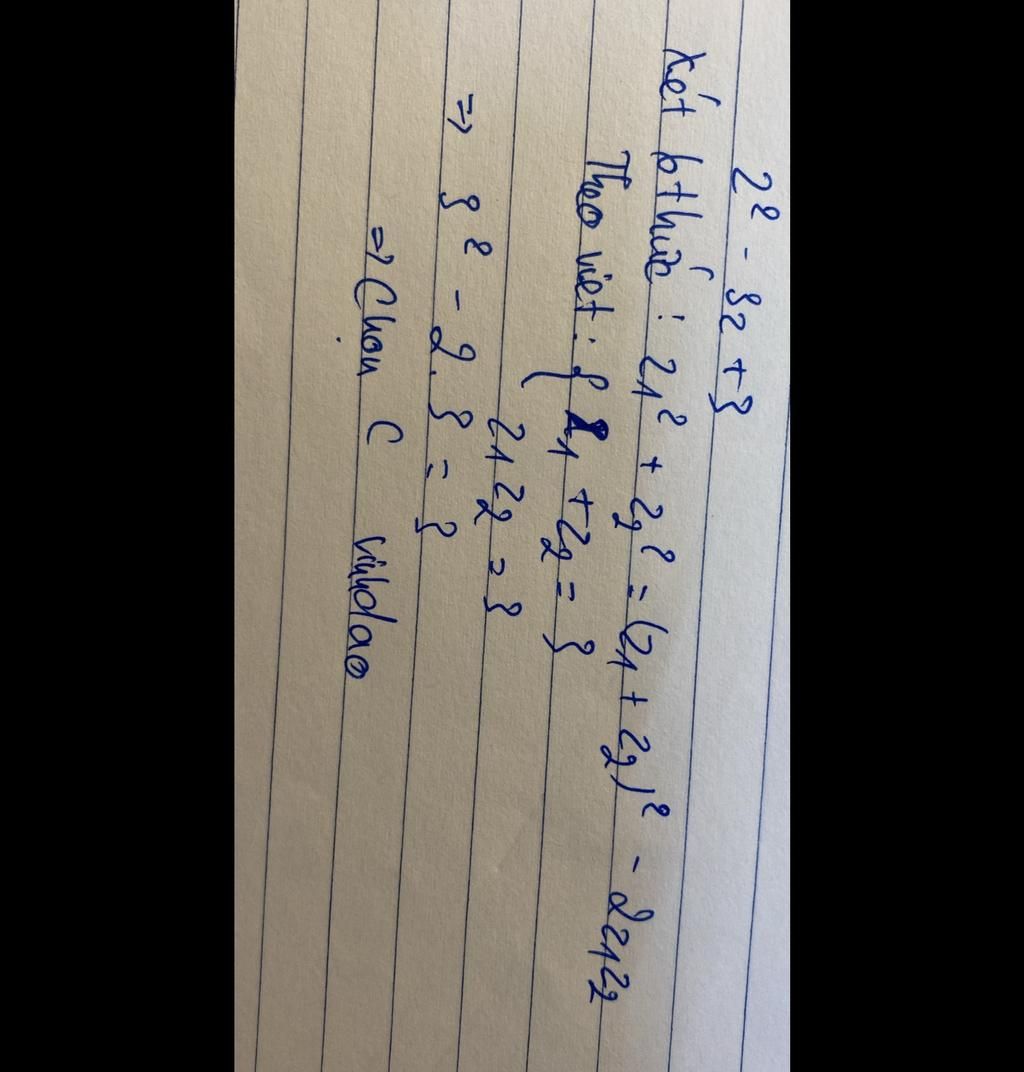 z² - 3z + 3
Xét bthức : z1² + z2² = (z1 + z2)² - 2z1z2
Theo viet : { z1 + z2 = 3
z1z2 = 3
=> 3² - 2.3 = 3
=> Chọn C vinhdao